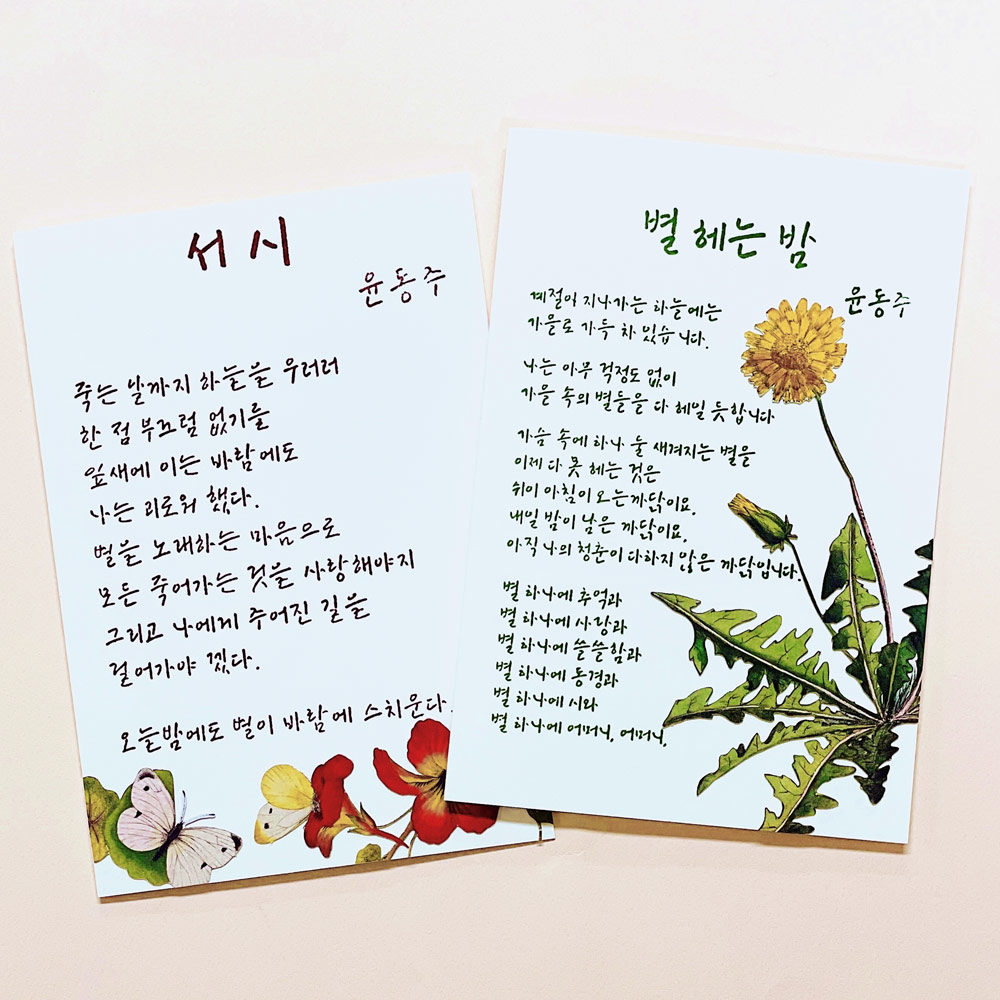 서시
윤동주
죽는 날까지 하늘을 우러러
한 점 부끄럼 없기를
잎새에 이는 바람에도
나는 괴로워 했다.
별을 노래하는 마음으로
모든 죽어가는 것을 사랑해야지
그리고 나에게 주어진 길을
걸어가야 겠다.
오늘밤에도 별이 바람에 스치운다.
별 헤는 밤
윤동주
계절이 지나가는 하늘에는
가을로 가득 차 있습니다.
나는 아무 걱정도 없이
가을 속의 별들을 다 헤일 듯합니다
가슴 속에 하나 둘 새겨지는 별을
이제 다 못 헤는 것은
쉬이 아침이 오는 까닭이요,
내일 밤이 남은 까닭이요,
아직 나의 청춘이 다하지 않은 까닭입니다.
별 하나에 추억과
별 하나에 사랑과
별 하나에 쓸쓸함과
별 하나에 동경과
별 하나에 시와
별 하나에 어머니, 어머니,